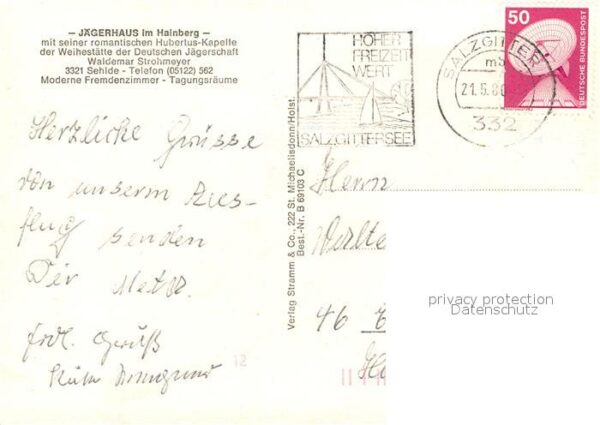 – JÄGERHAUS im Hainberg –
mit seiner romantischen Hubertus-Kapelle
der Weihestätte der Deutschen Jägerschaft
Waldemar Strohmeyer
3321 Sehlde - Telefon (05122) 562
Moderne Fremdenzimmer - Tagungsräume
HOHER
FREIZEIT
WERT
SALZGITTERSEE
SALZGITTER
21.5.80
332
50
DEUTSCHE BUNDESPOST
Herzliche Grüsse
von unserm Aus-
flug senden
frdl. Gruß
12
Verlag Stramm & Co., 222 St. Michaelisdonn/Holst.
Best.-Nr. B 69103 C
Herrn
Walte
46
privacy protection
Datenschutz